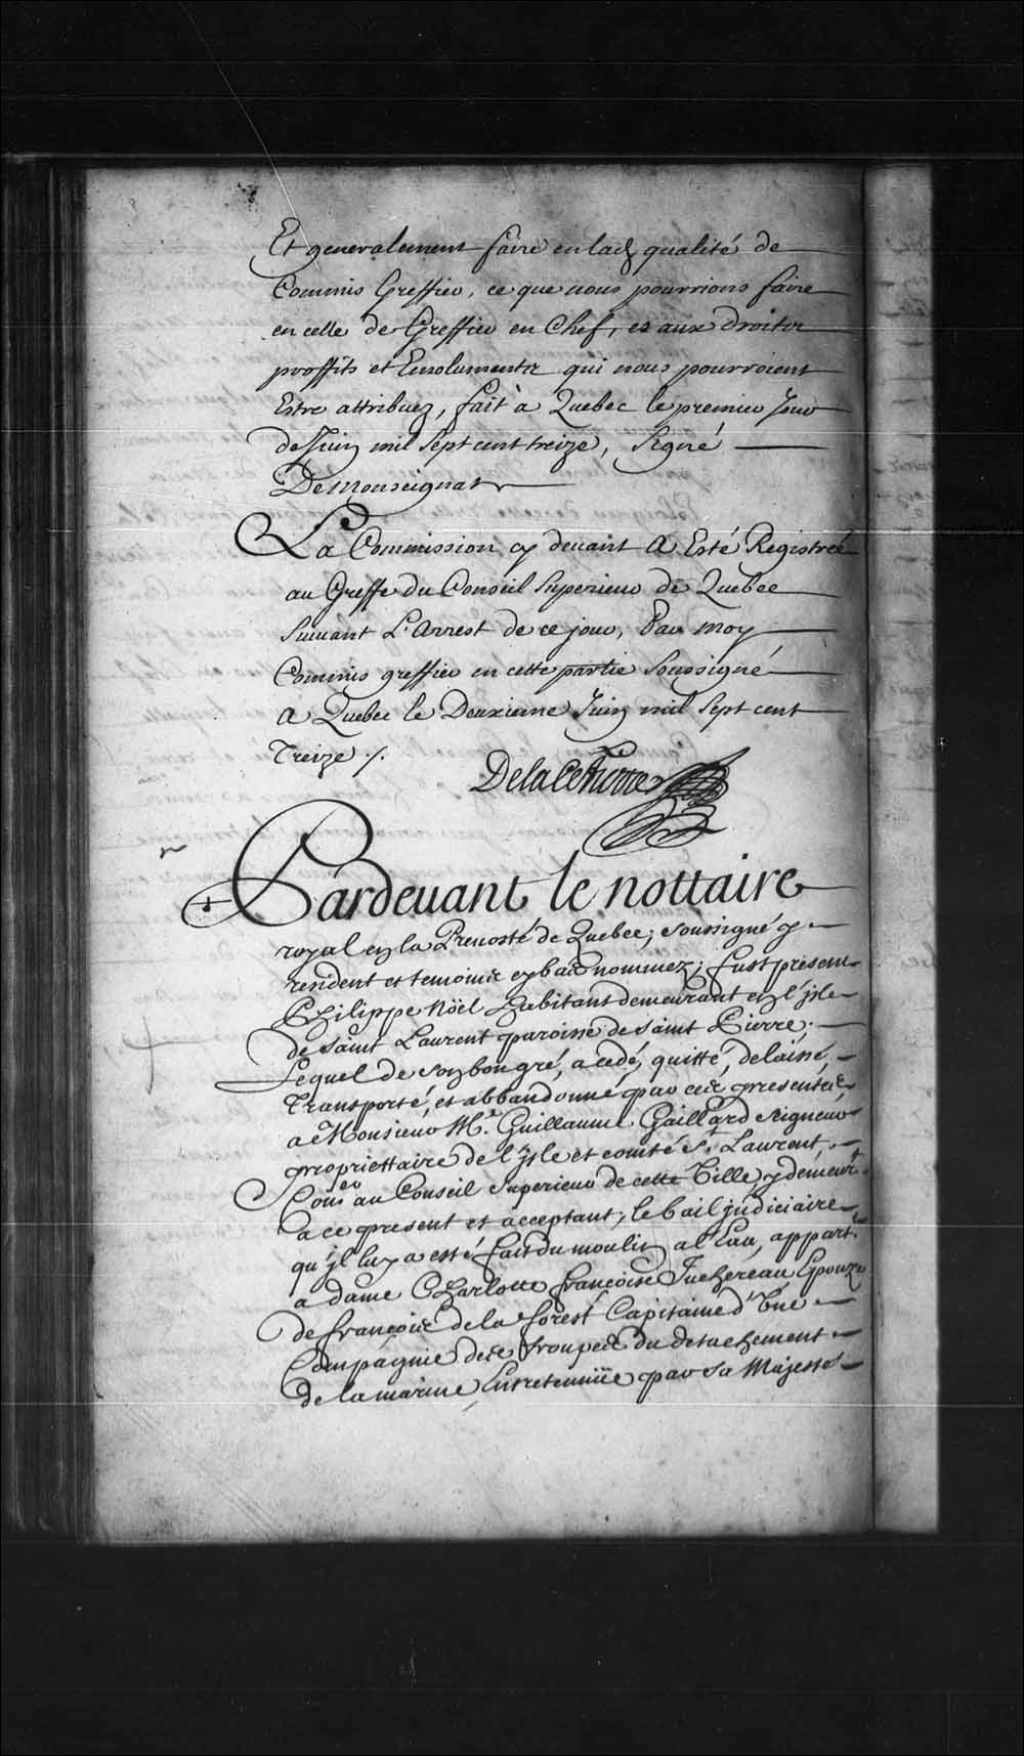 Et generalement faire en lad. qualité de
Commis Greffier, ce que nous pourrions faire
en celle de Greffier en Chef, et aux droits
proffits et Emoluments qui nous pourroient
Estre attribuez, fait à Quebec le premier Jour
de Juin mil sept cent treize, signé
De Monseignat
La Commission cy devant A Esté Registrée
au Greffe du Conseil Superieur de Quebec
suivant L'Arrest de ce jour, Par moy
Commis greffier en cette partie soussigné
A Quebec le Deuxieme Juin mil sept cent
Treize ./.
Delacetiere
Pardevant le nottaire
royal en la Prevosté de Quebec; soussigné y
rendent et temoins cy bas nommez; fust present
Philippe Noël habitant demeurant en l'jsle
de saint Laurent paroisse de saint Pierre;
Lequel de son bon gré, a cedé, quitté, delaissé
Transporté, et abbandonné par ces presentes
a Monsieur Mr. Guillaume Gaillard seigneur
propriettaire de l'jsle et comté St. Laurent,
Conser au Conseil Superieur de cette Ville y demeurt.
a ce present et acceptant; le bail judiciaire
qu'jl luy a esté fait du moulin a l'Eau, appart.
a dame Charlotte françoise Juchereau Epouze
de françois de la forest Capitaine d'Une
Compagnie des troupes du detachement
de la marine Entretenuüe par sa Majesté